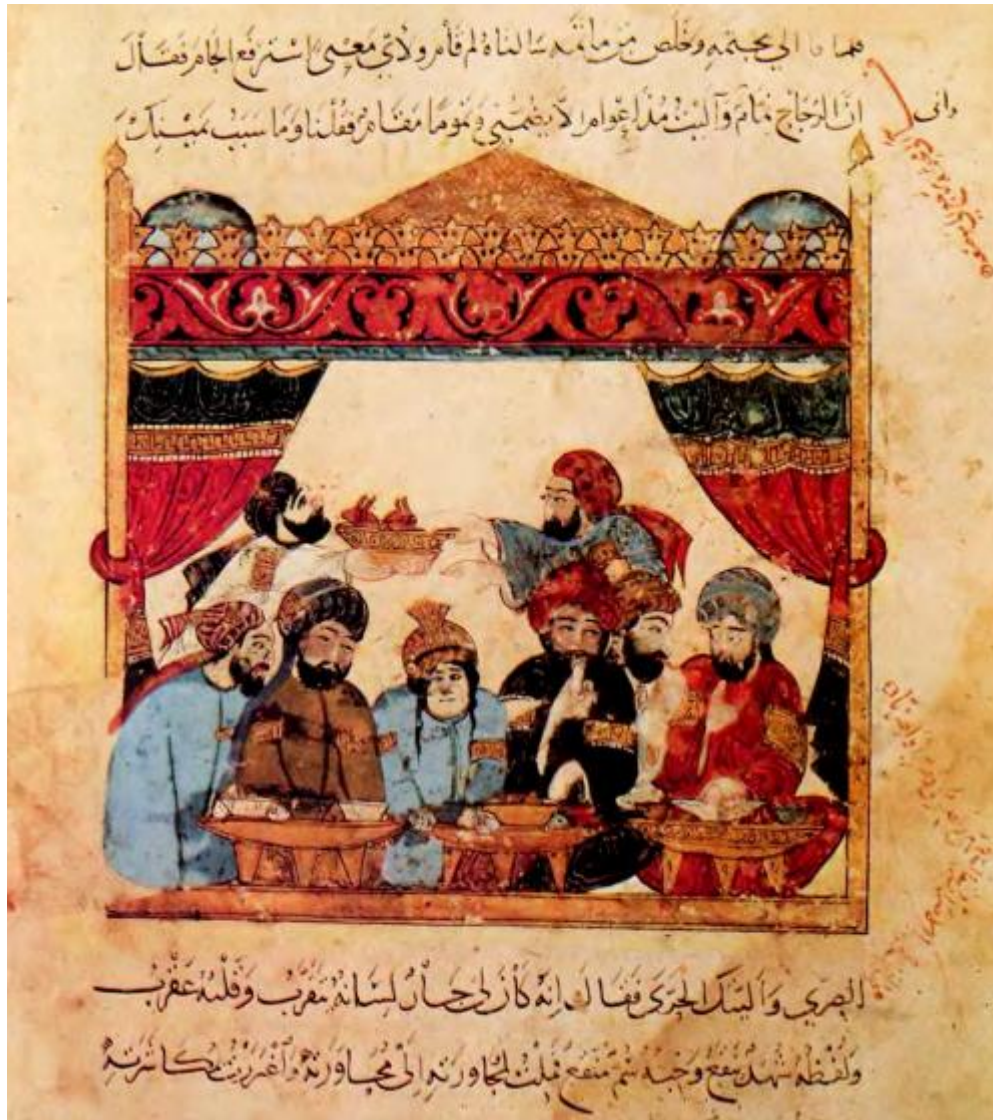 فلما فا الى مجثمه وخلص من ماثمه سالناه لم قام ولاي معنى استرفع الجام فقال
وانى ان الزجاج نمام وآليت مذ اعوام لا يضمني ونموما مقام فقلنا وما سبب يمينك
الصرى واليتك الحرى فقال انه كان لى جار لسانه يتقرب وقلبه عقرب
ولفظه شهد ينقع وخبه سم منقع فملت لمجاورته الى محاورته واغتررت بمكاشرته